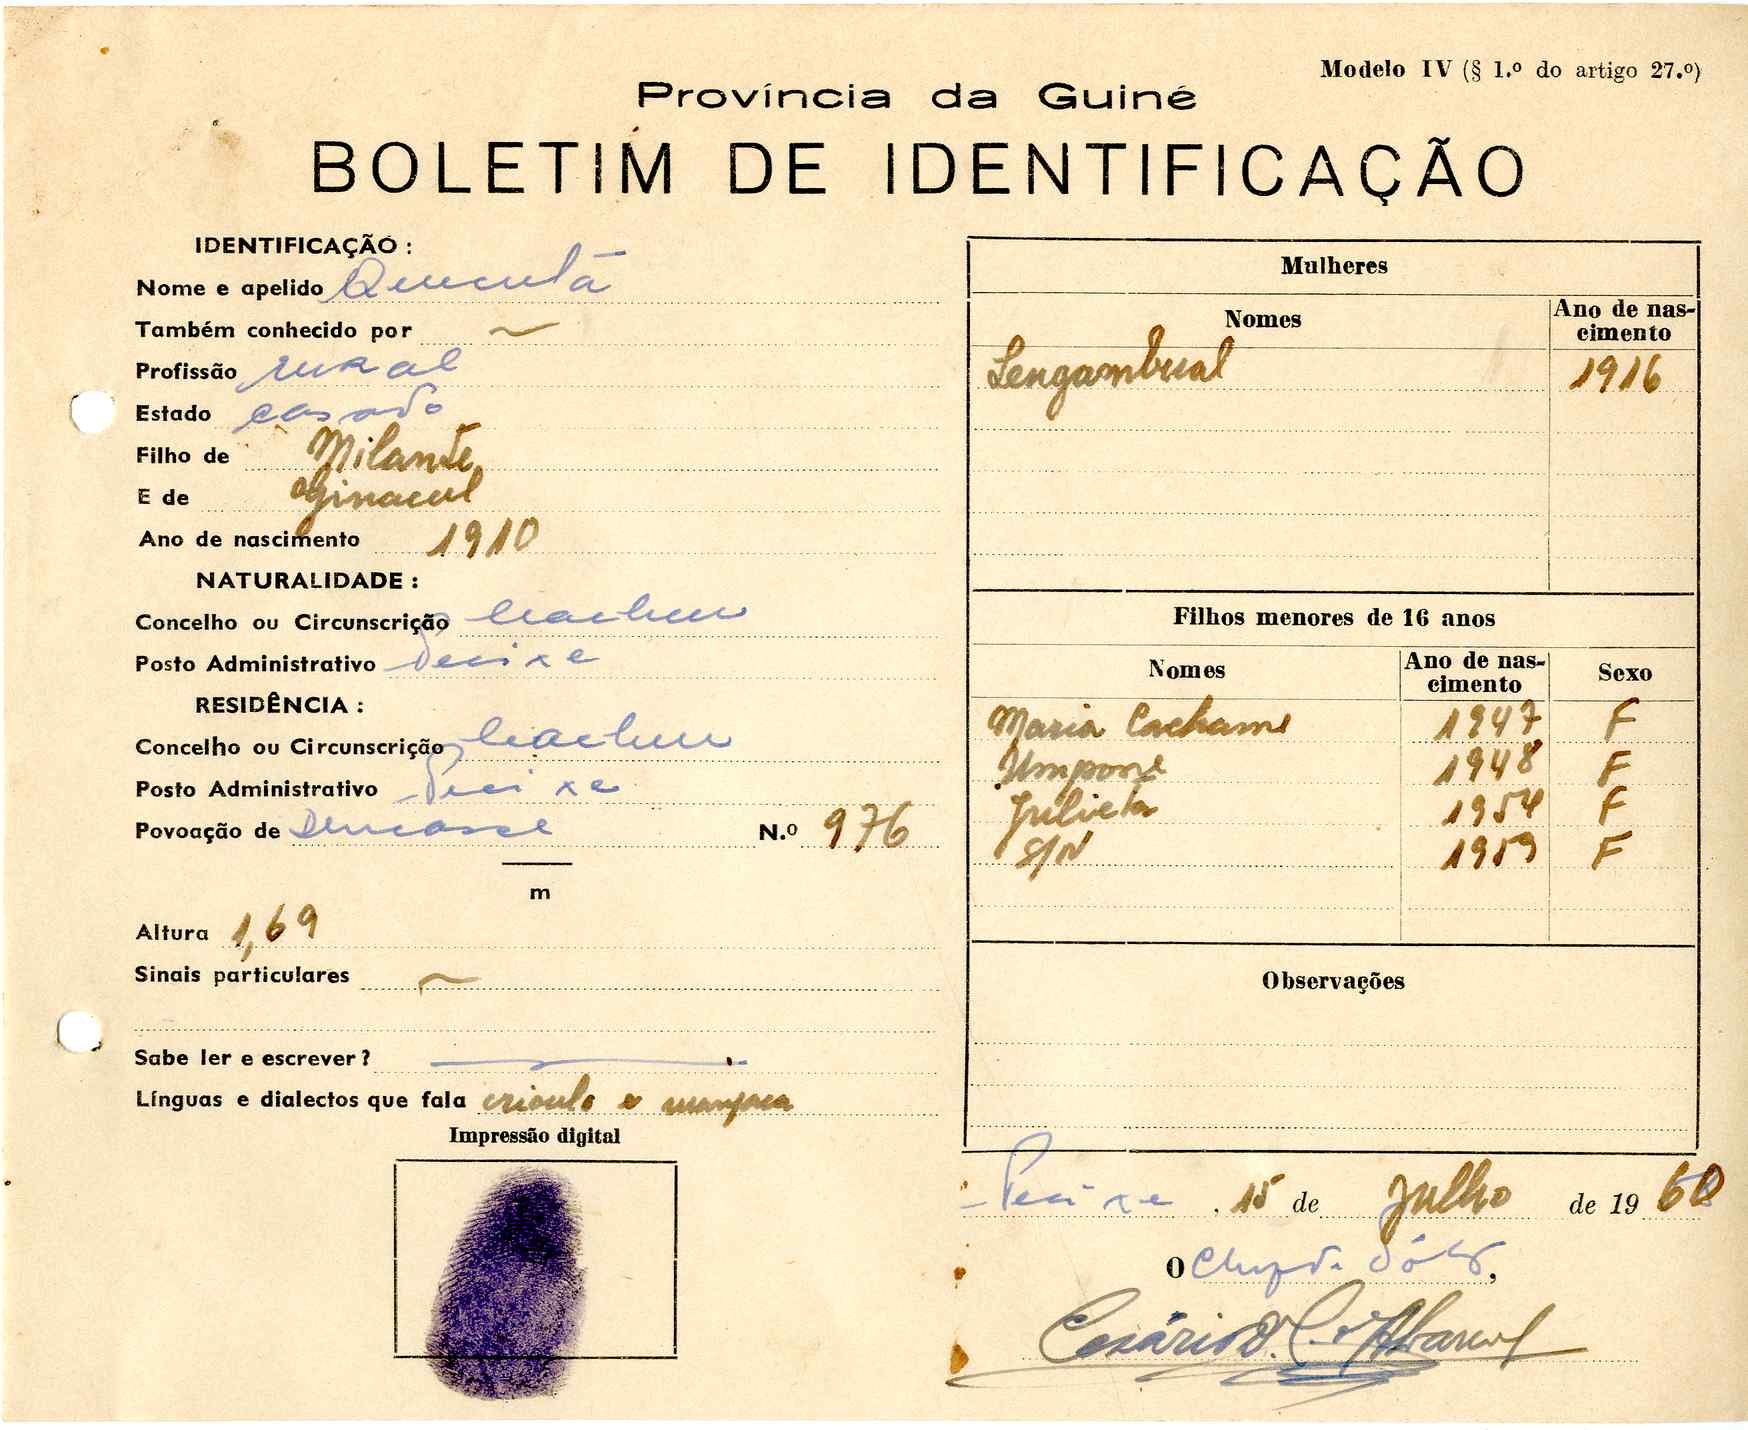 Modelo IV (§ 1.º do artigo 27.º)
Província da Guiné
BOLETIM DE IDENTIFICAÇÃO
IDENTIFICAÇÃO :
Nome e apelido
Também conhecido por ~
Profissão rural
Estado casado
Filho de Milante
E de Ginacul
Ano de nascimento 1910
NATURALIDADE :
Concelho ou Circunscrição Cacheu
Posto Administrativo Pecixe
RESIDÊNCIA :
Concelho ou Circunscrição Cacheu
Posto Administrativo Pecixe
Povoação de N.º 976
m
Altura 1,69
Sinais particulares ~
Sabe ler e escrever ?
Línguas e dialectos que fala crioulo e manjaca
Impressão digital
Mulheres
Nomes Ano de nas-
cimento
Lengambual 1916
Filhos menores de 16 anos
Nomes Ano de nas-
cimento Sexo
Maria Cachame 1947 F
Umpone 1948 F
Julieta 1954 F
S/N 1959 F
Observações
Pecixe, 15 de Julho de 1960
O Chefe do Pôsto,
Cesário